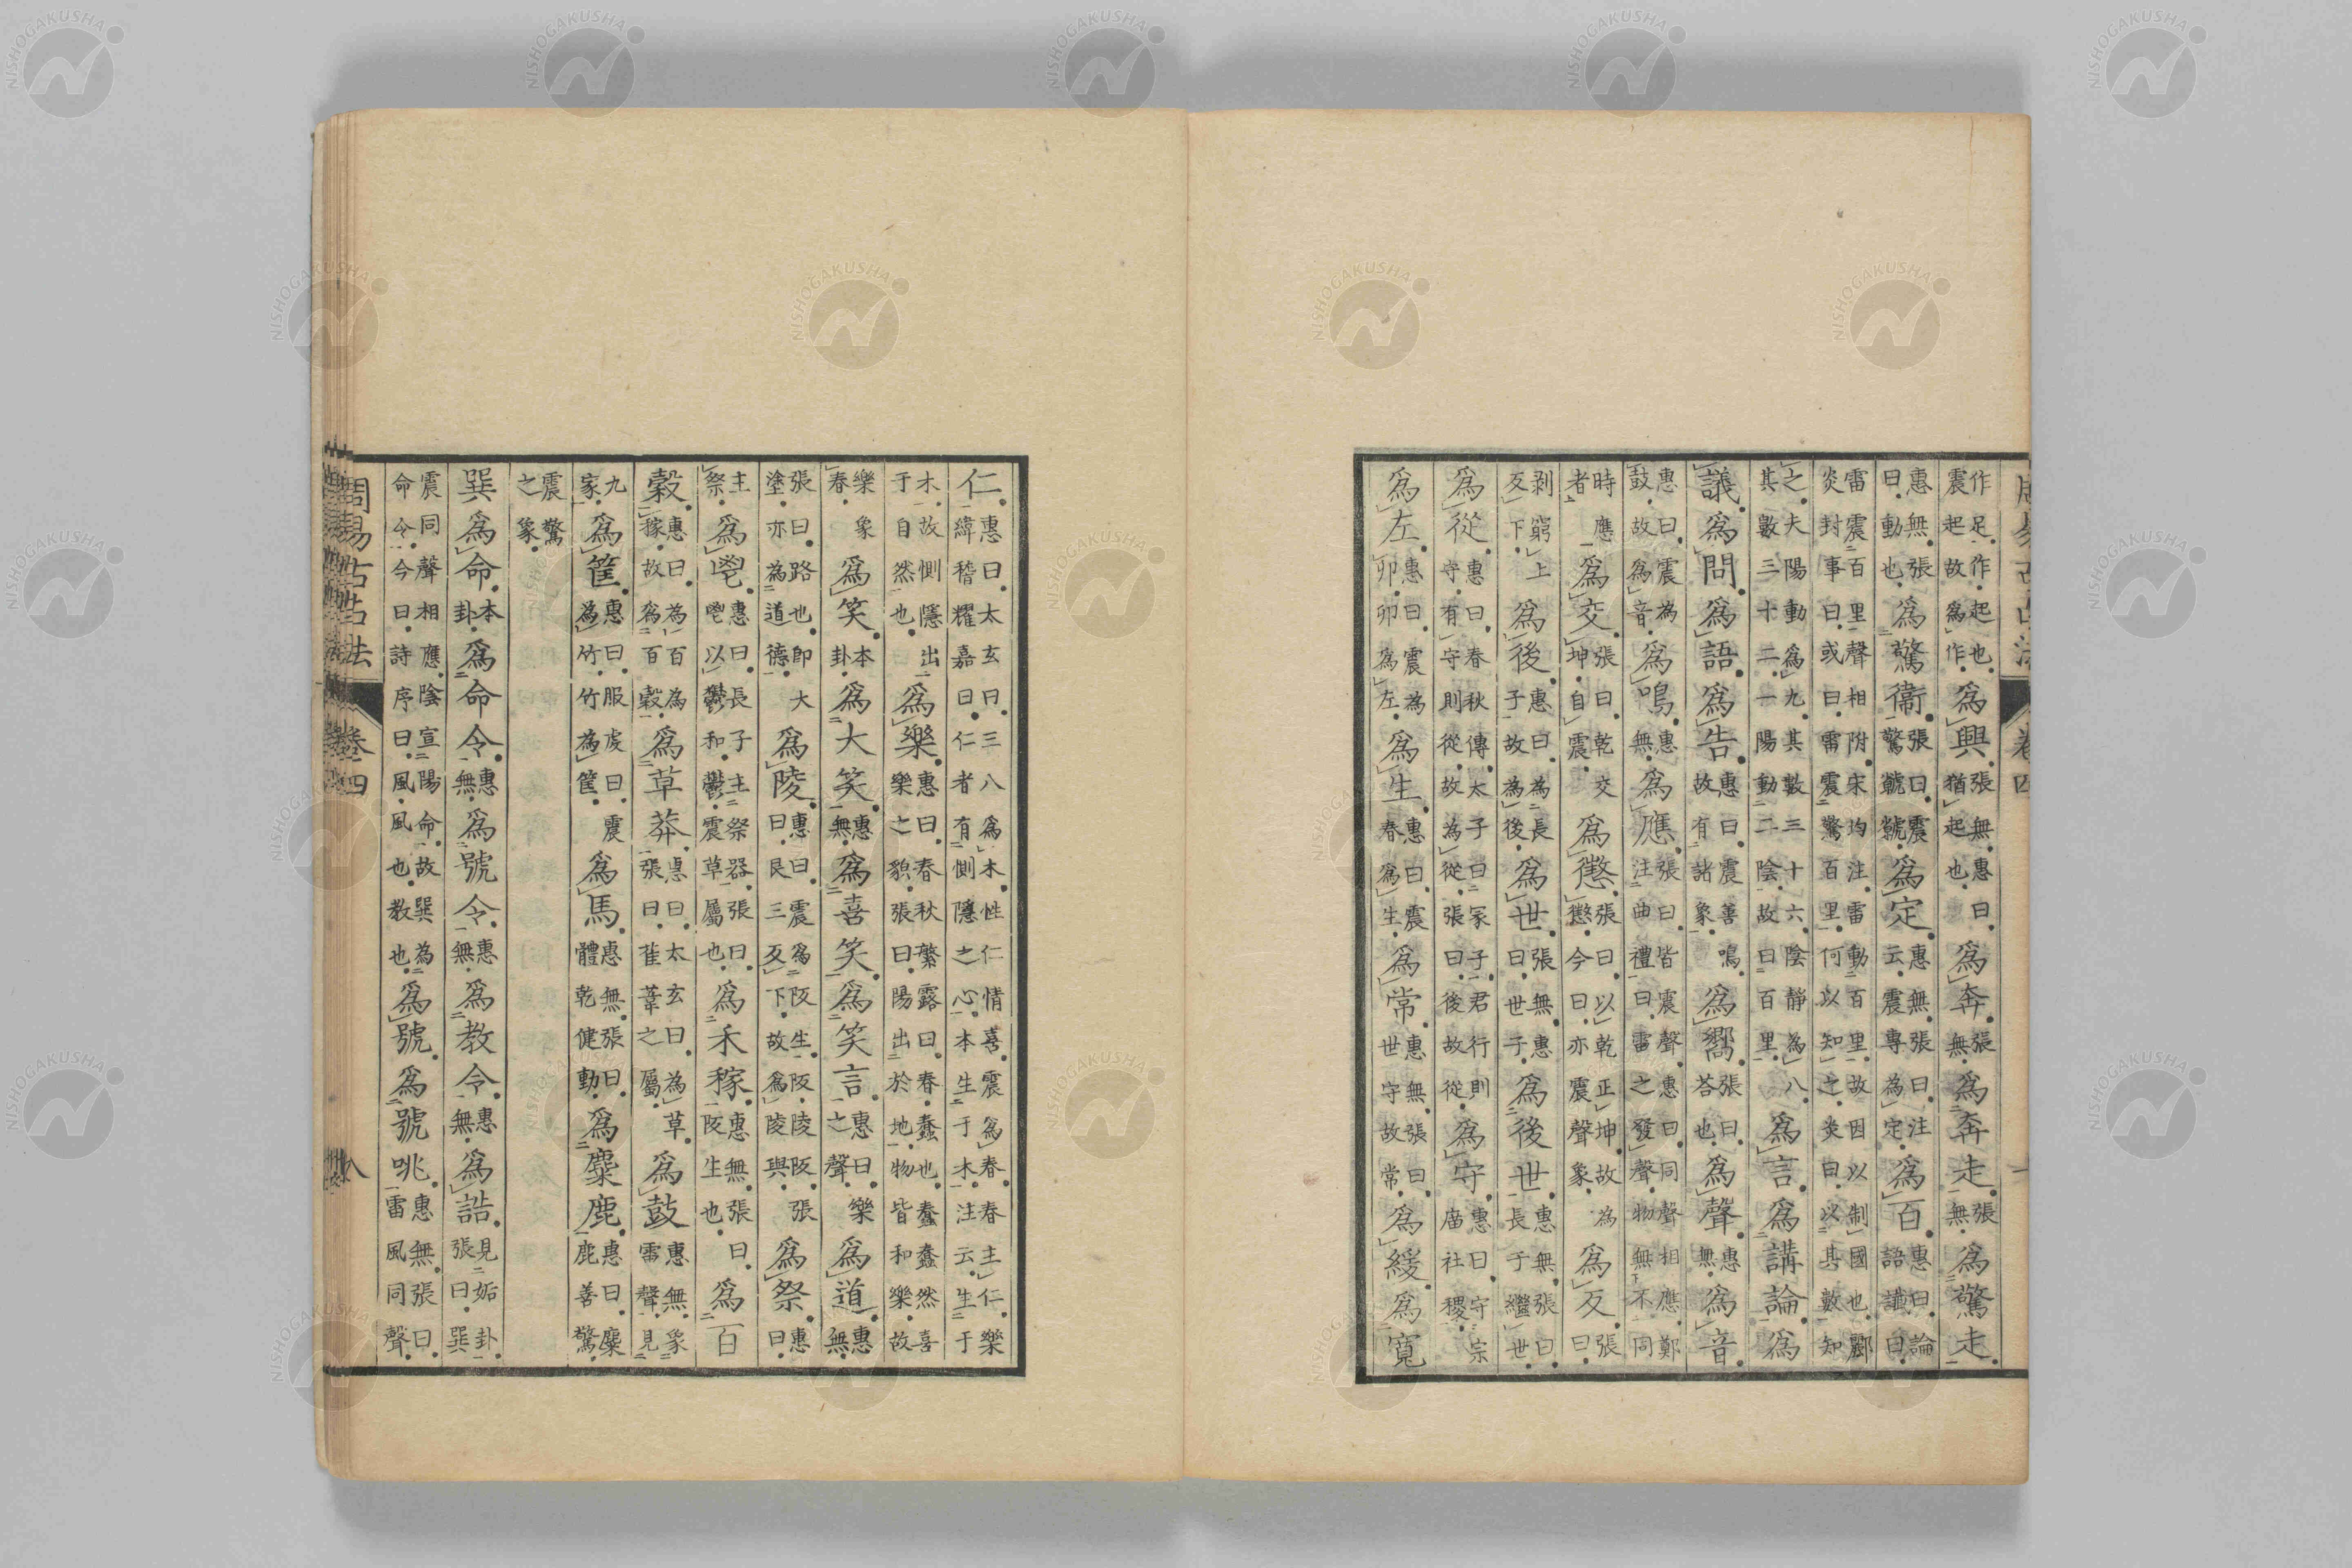 周易古占法 卷四
作足作起也震起故爲作爲興張無惠曰猶起也爲奔張無爲奔走張無爲驚走
惠無張曰動也爲驚衞張曰震驚虩虩爲定惠無張曰注云震專為定爲百惠曰論語讖曰
雷震百里聲相附宋均注雷動百里故因以制國也酈炎封事曰或曰雷震驚百里何以知之炎曰以其數知
之夫陽動爲九其數三十六陰靜為八其數三十二一陽動二陰故曰百里爲言爲講論爲
議爲問爲語爲告惠曰震善鳴故有諸象爲嚮張曰答也爲聲惠無爲音
惠曰震為鼓故為音爲鳴惠無爲應張曰皆震聲惠曰同聲相應鄭注曲禮曰雷之發聲物無不同
時應者爲交張曰乾交坤自震爲懲張曰以乾正坤故為懲今曰亦震聲象爲反張曰
剥窮上反下爲後惠曰為長子故為後爲世張無惠曰世子爲後世惠無張曰長于繼世
爲從惠曰春秋傳太子曰冢子君行則守有守則從故為從張曰後故從爲守惠曰守宗廟社稷
爲左惠曰震為卯卯為左爲生惠曰震春爲生爲常惠無張曰世守故常爲緩爲寛
仁惠曰太玄曰三八爲木性仁情喜震爲春春主仁樂緯稽耀嘉曰仁者有惻隱之心本生于木注云生于
木故惻隱出于自然也爲樂惠曰春秋繁露曰春蠢也蠢蠢然喜樂之貌張曰陽出於地物皆和樂故
樂象春爲笑本卦爲大笑惠無爲喜笑爲笑言惠曰樂之聲爲道惠無
張曰路也即大塗亦為道德爲陵惠曰震爲阪生阪陵阪張曰艮三反下故爲陵與爲祭惠曰
主祭爲鬯惠曰長子主祭器張曰鬯以鬱和鬱震草屬也爲禾稼惠無張曰阪生也爲百
穀惠曰為百為稼故爲百穀爲草莽惠曰太玄曰為草張曰萑葦之屬爲鼓惠無象雷聲見
九家爲筐惠曰服虔曰震為竹竹為筐爲馬惠無張曰體乾健動爲麋鹿惠曰麋鹿善驚
震驚之象
巽爲命本卦爲命令惠無爲號令惠無爲教令惠無爲誥見姤卦張曰巽
震同聲相應陰宣陽命故巽為命令今曰詩序曰風風也教也爲號爲號咷惠無張曰雷風同聲
周易古占法 卷四 八